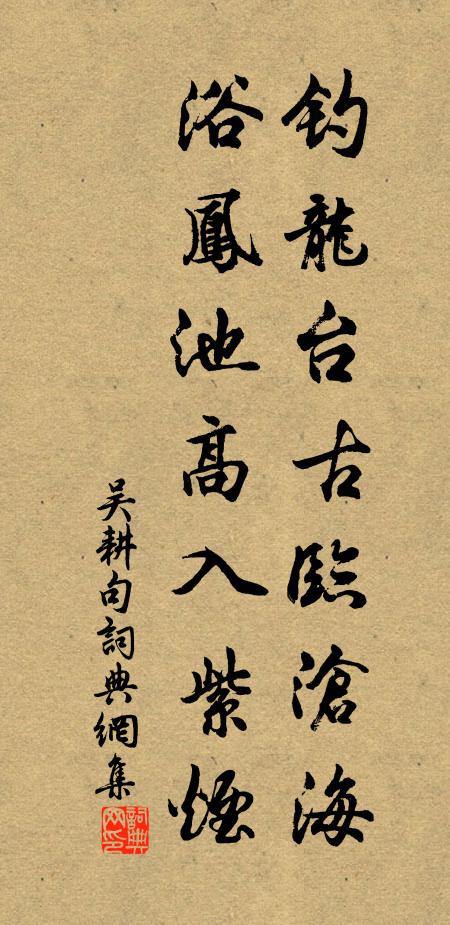 釣龍台古臨滄海
浴鳳池高入紫煙
吴耕句詞典網集
詞典网印